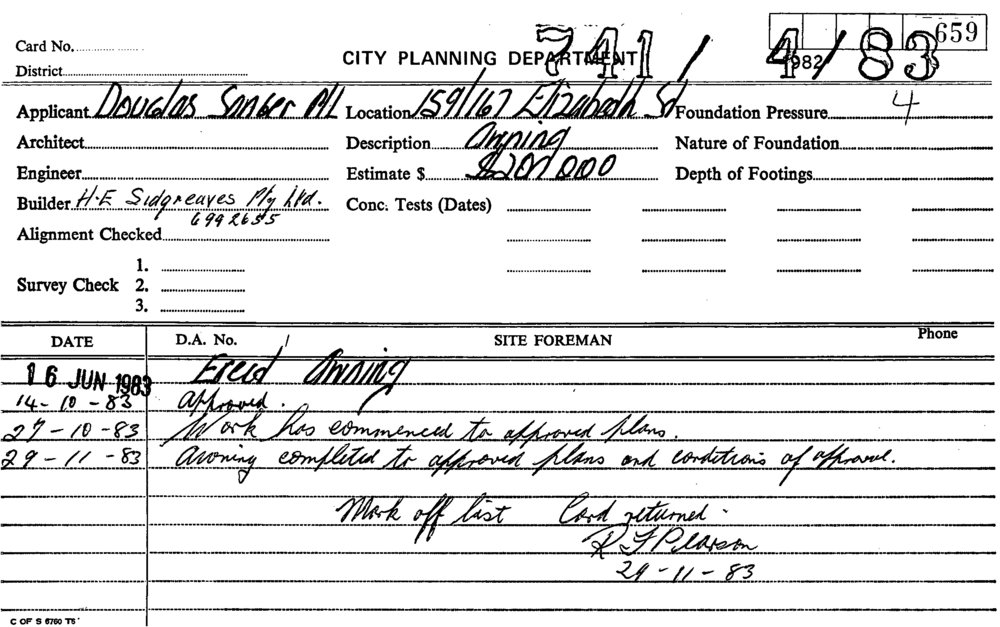 659
Card No.
741/4/83
CITY PLANNING DEPARTMENT 1982
District
Applicant Douglas P/L Location 159/167 Elizabeth St Foundation Pressure 4
Architect Description Awning Nature of Foundation
Engineer Estimate $ Depth of Footings
Builder H.E Sidgreaves Pty Ltd. Conc. Tests (Dates)
6992655
Alignment Checked
1.
Survey Check 2.
3.
DATE D.A. No. SITE FOREMAN Phone
16 JUN 1983 Erect Awning
14-10-83 Approved.
27-10-83 Work has commenced to approved plans.
29-11-83 Awning completed to approved plans and conditions of approval.
Mark off list Card returned.
R F Pearson
29-11-83
C OF S 6760 T5